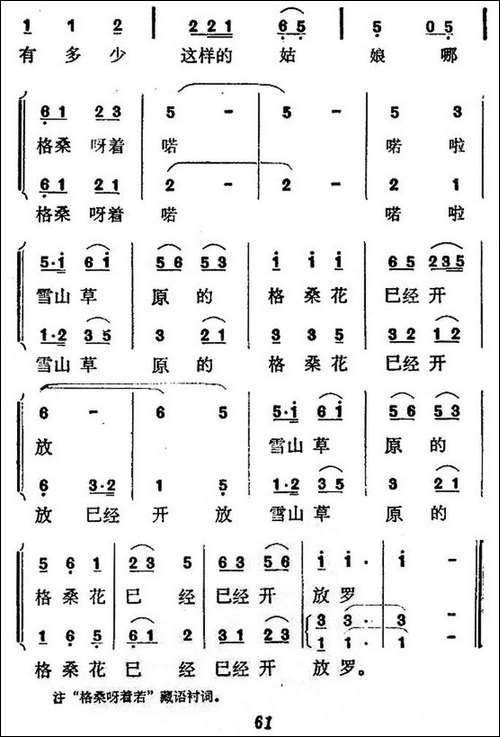 1 1 2 | 2 2 1 6 5 | 5 0 5
有多少 这样的 姑 娘 哪
6 1 2 3 | 5 - | 5 - | 5 3
格桑 呀着 喏 喏 啦
6 1 2 1 | 2 - | 2 - | 2 1
格桑 呀着 喏 喏 啦
5·i 6 i | 5 6 5 3 | i i i | 6 5 2 3 5
雪山草 原 的 格 桑 花 已经开
1·2 3 5 | 3 2 1 | 3 3 3 | 3 2 1 2
雪山草 原 的 格 桑 花 已经开
6 - | 6 5 | 5·i 6 i | 5 6 5 3
放 雪山草 原 的
6 3·2 | 1 5 | 1·2 3 5 | 3 2 1
放 已经 开 放 雪山草 原 的
5 6 1 | 2 3 5 | 6 3 5 6 | i i· | i -
格桑花 已 经 已经开 放罗
1 6 5 | 6 1 2 | 3 1 2 3 | 3 3· | 3 -
1 1· | 1 -
格桑花 已 经 已经开 放罗。
注 “格桑呀着若”藏语衬词。
61